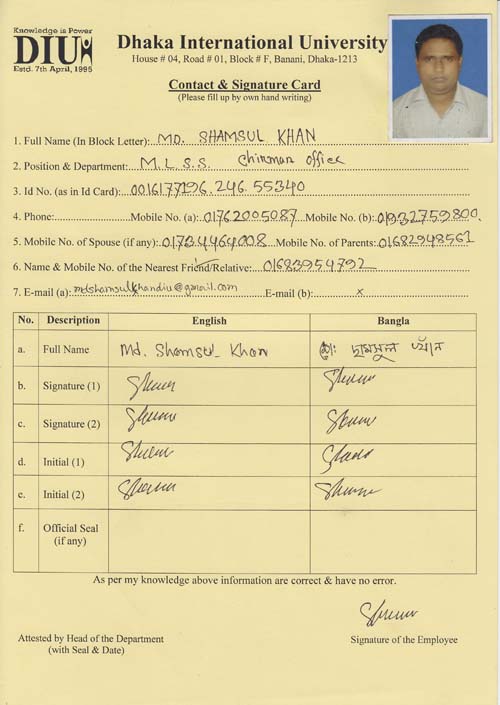 Knowledge is Power
DIU
Estd. 7th April, 1995
Dhaka International University
House # 04, Road # 01, Block # F, Banani, Dhaka-1213
Contact & Signature Card
(Please fill up by own hand writing)
1. Full Name (In Block Letter): MD. SHAMSUL KHAN
2. Position & Department: M.L.S.S. Chirman office
3. Id No. (as in Id Card): 0016177196.246.55340
4. Phone: Mobile No. (a): 01762005087 Mobile No. (b): 01932759800.
5. Mobile No. of Spouse (if any): 01734464008 Mobile No. of Parents: 01682948561
6. Name & Mobile No. of the Nearest Friend/Relative: 01683954792
7. E-mail (a): mdshamsulkhandiu@gmail.com E-mail (b): x
No. Description English Bangla
a. Full Name Md. Shamsul Khan মো: শামসুল খাঁন
b. Signature (1)
c. Signature (2)
d. Initial (1)
e. Initial (2)
f. Official Seal
(if any)
As per my knowledge above information are correct & have no error.
Attested by Head of the Department
(with Seal & Date)
Signature of the Employee